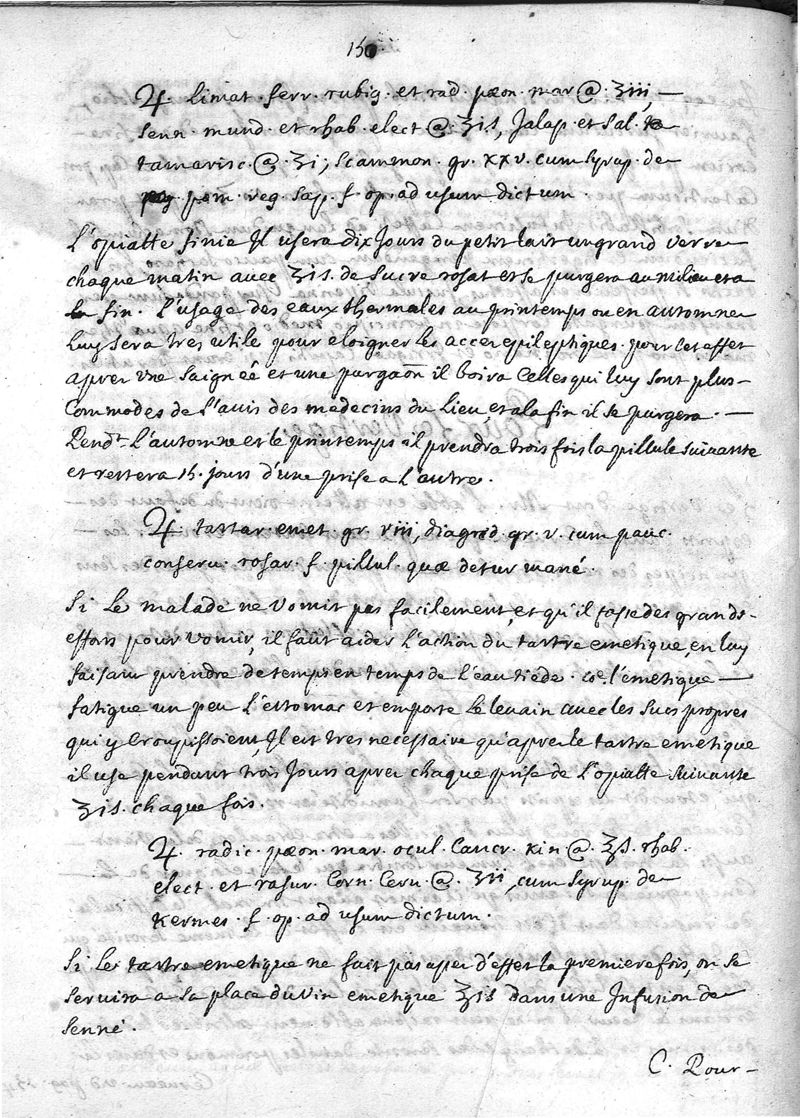 150.
♃. Limat. ferr. rubig. et rad. pæon. mar @. ʒiii,—
senn. mund. et rhab. elect @. ʒis, Jalap. et Sal.
tamarisc. @. ʒi; Scammon. gr. xxv. cum Syrup. de
pœm. reg. sap. f. op. ad usum dictum.
L'opiatte finie Il usera dix Jours du petit lait un grand verre
chaque matin avec ʒis. de Sucre rosat et se purgera au milieu et a
la fin. L'usage des eaux thermales au printemps ou en automne
luy sera tres utile pour eloigner les acces epileptiques. pour cet effet
apres une saigneé et une purgaõn il boira Celles qui luy sont plus—
Commodes de l'avis des medecins du Lieu, et a la fin il se purgera.—
Pendt. L'automne et le printemps il prendra trois fois la pillule suivante
et restera 15. jours d'une prise a L'autre.
♃. tartar. emet. gr. viii, diagred. gr. v. cum pauc.
conserv. rosar. f. pillul. quæ detur mané.
Si Le malade ne vomit pas facilement, et qu'il fasse des grands-
effors pour vomir, il faut aider L'action du tartre emetique, en luy
faisant prendre de temps en temps de L'eau tiede. coe. l'emetique—
fatigue un peu L'estomac et emporte le levain avec les Sucs propres
qui y Croupissoient, Il est tres necessaire qu'apres le tartre emetique
il use pendant trois Jours apres chaque prise de L'opiatte Suivante
ʒis. chaque fois.
♃. radic. pæon. mar. ocul. Cancr. Kin @. ʒs. rhab.
elect. et rasur. Corn. Cerv. @. ʒii, cum Syrup. de
Kermes. f. op. ad usum dictum.
Si Le tartre emetique ne fait pas asses d'effet la premiere fois, on se
servira a Sa place du vin emetique ʒis dans une Infusion de
Senné.
C. Pour-